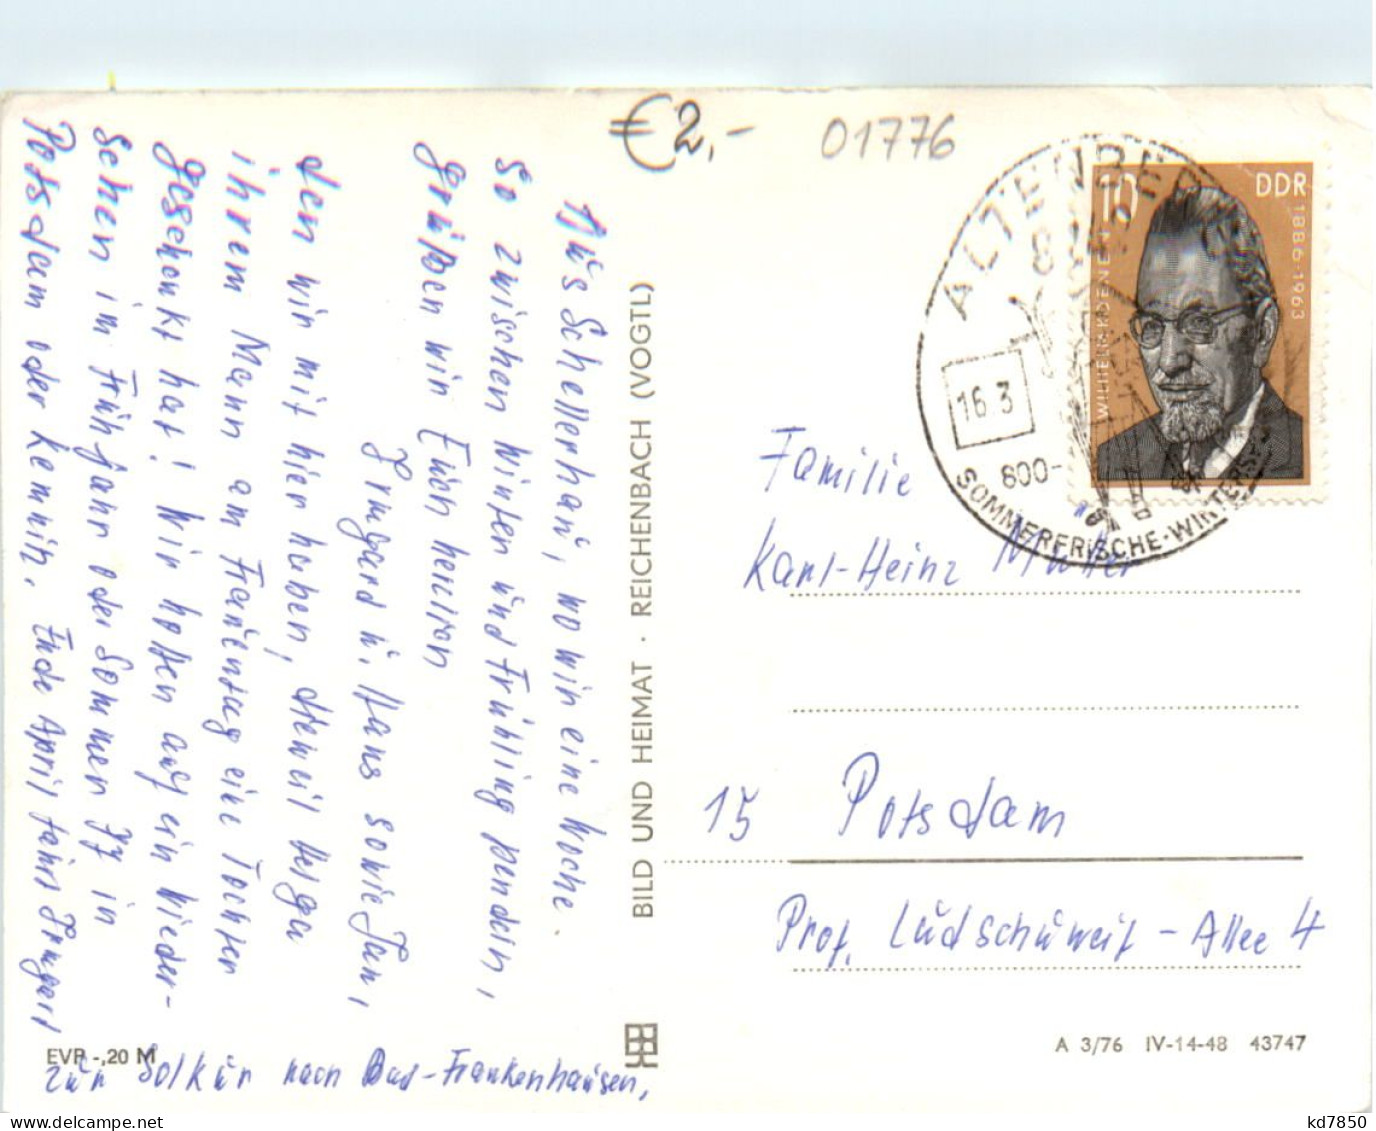 €2,-
01776
Aus Schellerhau, wo wir eine Woche
so zwischen Winter und Frühling pendeln,
grüßen wir Euch herzlich
Irmgard u. Hans sowie Jan,
den wir mit hier haben, dieweil Helga
ihrem Mann am Frauentag eine Tochter
geschenkt hat! Wir hoffen auf ein Wieder-
sehen im Frühjahr oder Sommer 77 in
Potsdam oder Kemnitz. Ende April fährt Irmgard
zur Solkur nach Bad-Frankenhausen,
EVP -,20 M
BILD UND HEIMAT · REICHENBACH (VOGTL)
ALTENBERG
16.3
800-
SOMMERFRISCHE-WINTERS
10
DDR
1886-1963
WILHELM KOENEN
Familie
Karl-Heinz Müller
15 Potsdam
Prof. Ludschuweit-Allee 4
A 3/76 IV-14-48 43747
kd7850